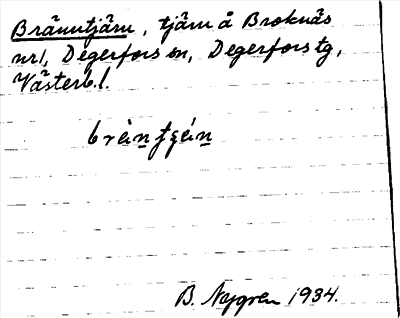 Bränntjärn, tjärn å Broknäs
nr1, Degerfors sn, Degerfors tg,
Västerb. l.
B. Nygren 1934.